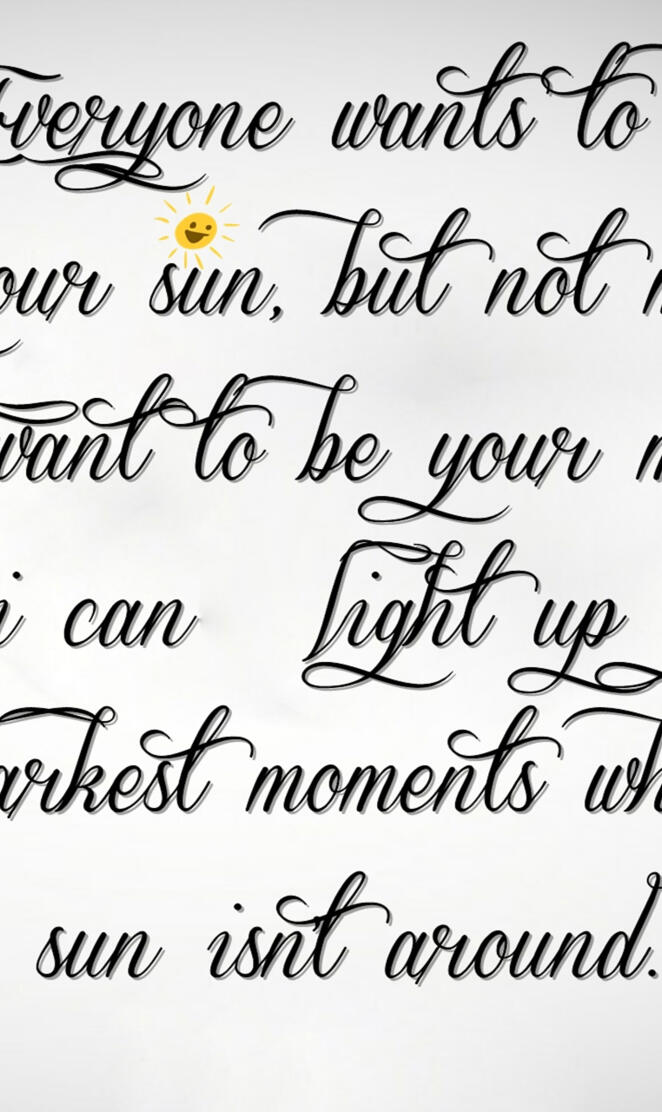 Everyone wants to
your sun, but not
want to be your
i can Light up
darkest moments
sun isn't around.